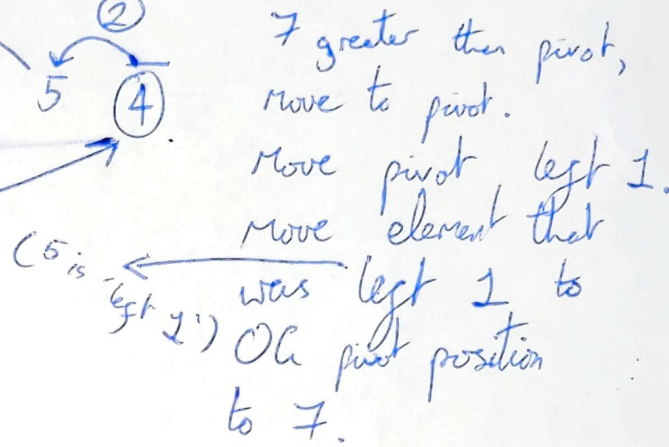 2
5 4
7 greater then pivot,
move to pivot.
Move pivot left 1.
Move element that
was left 1 to
OG pivot position
to 7.
(5 is
"left 1")